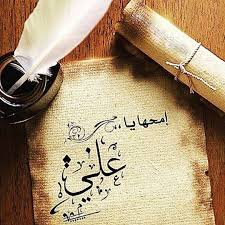 إمحها يا ..
علي